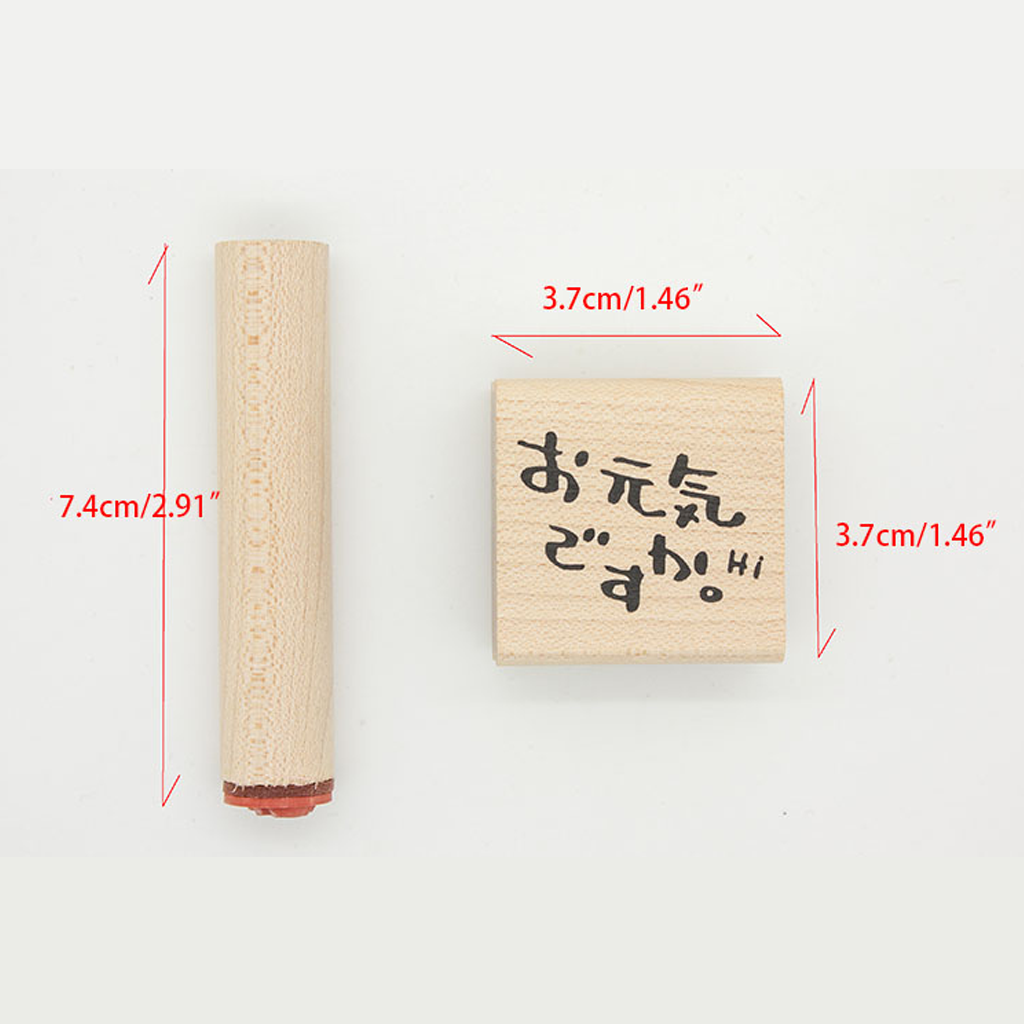 3.7cm/1.46"
7.4cm/2.91"
お元気
ですか。Hi
3.7cm/1.46"